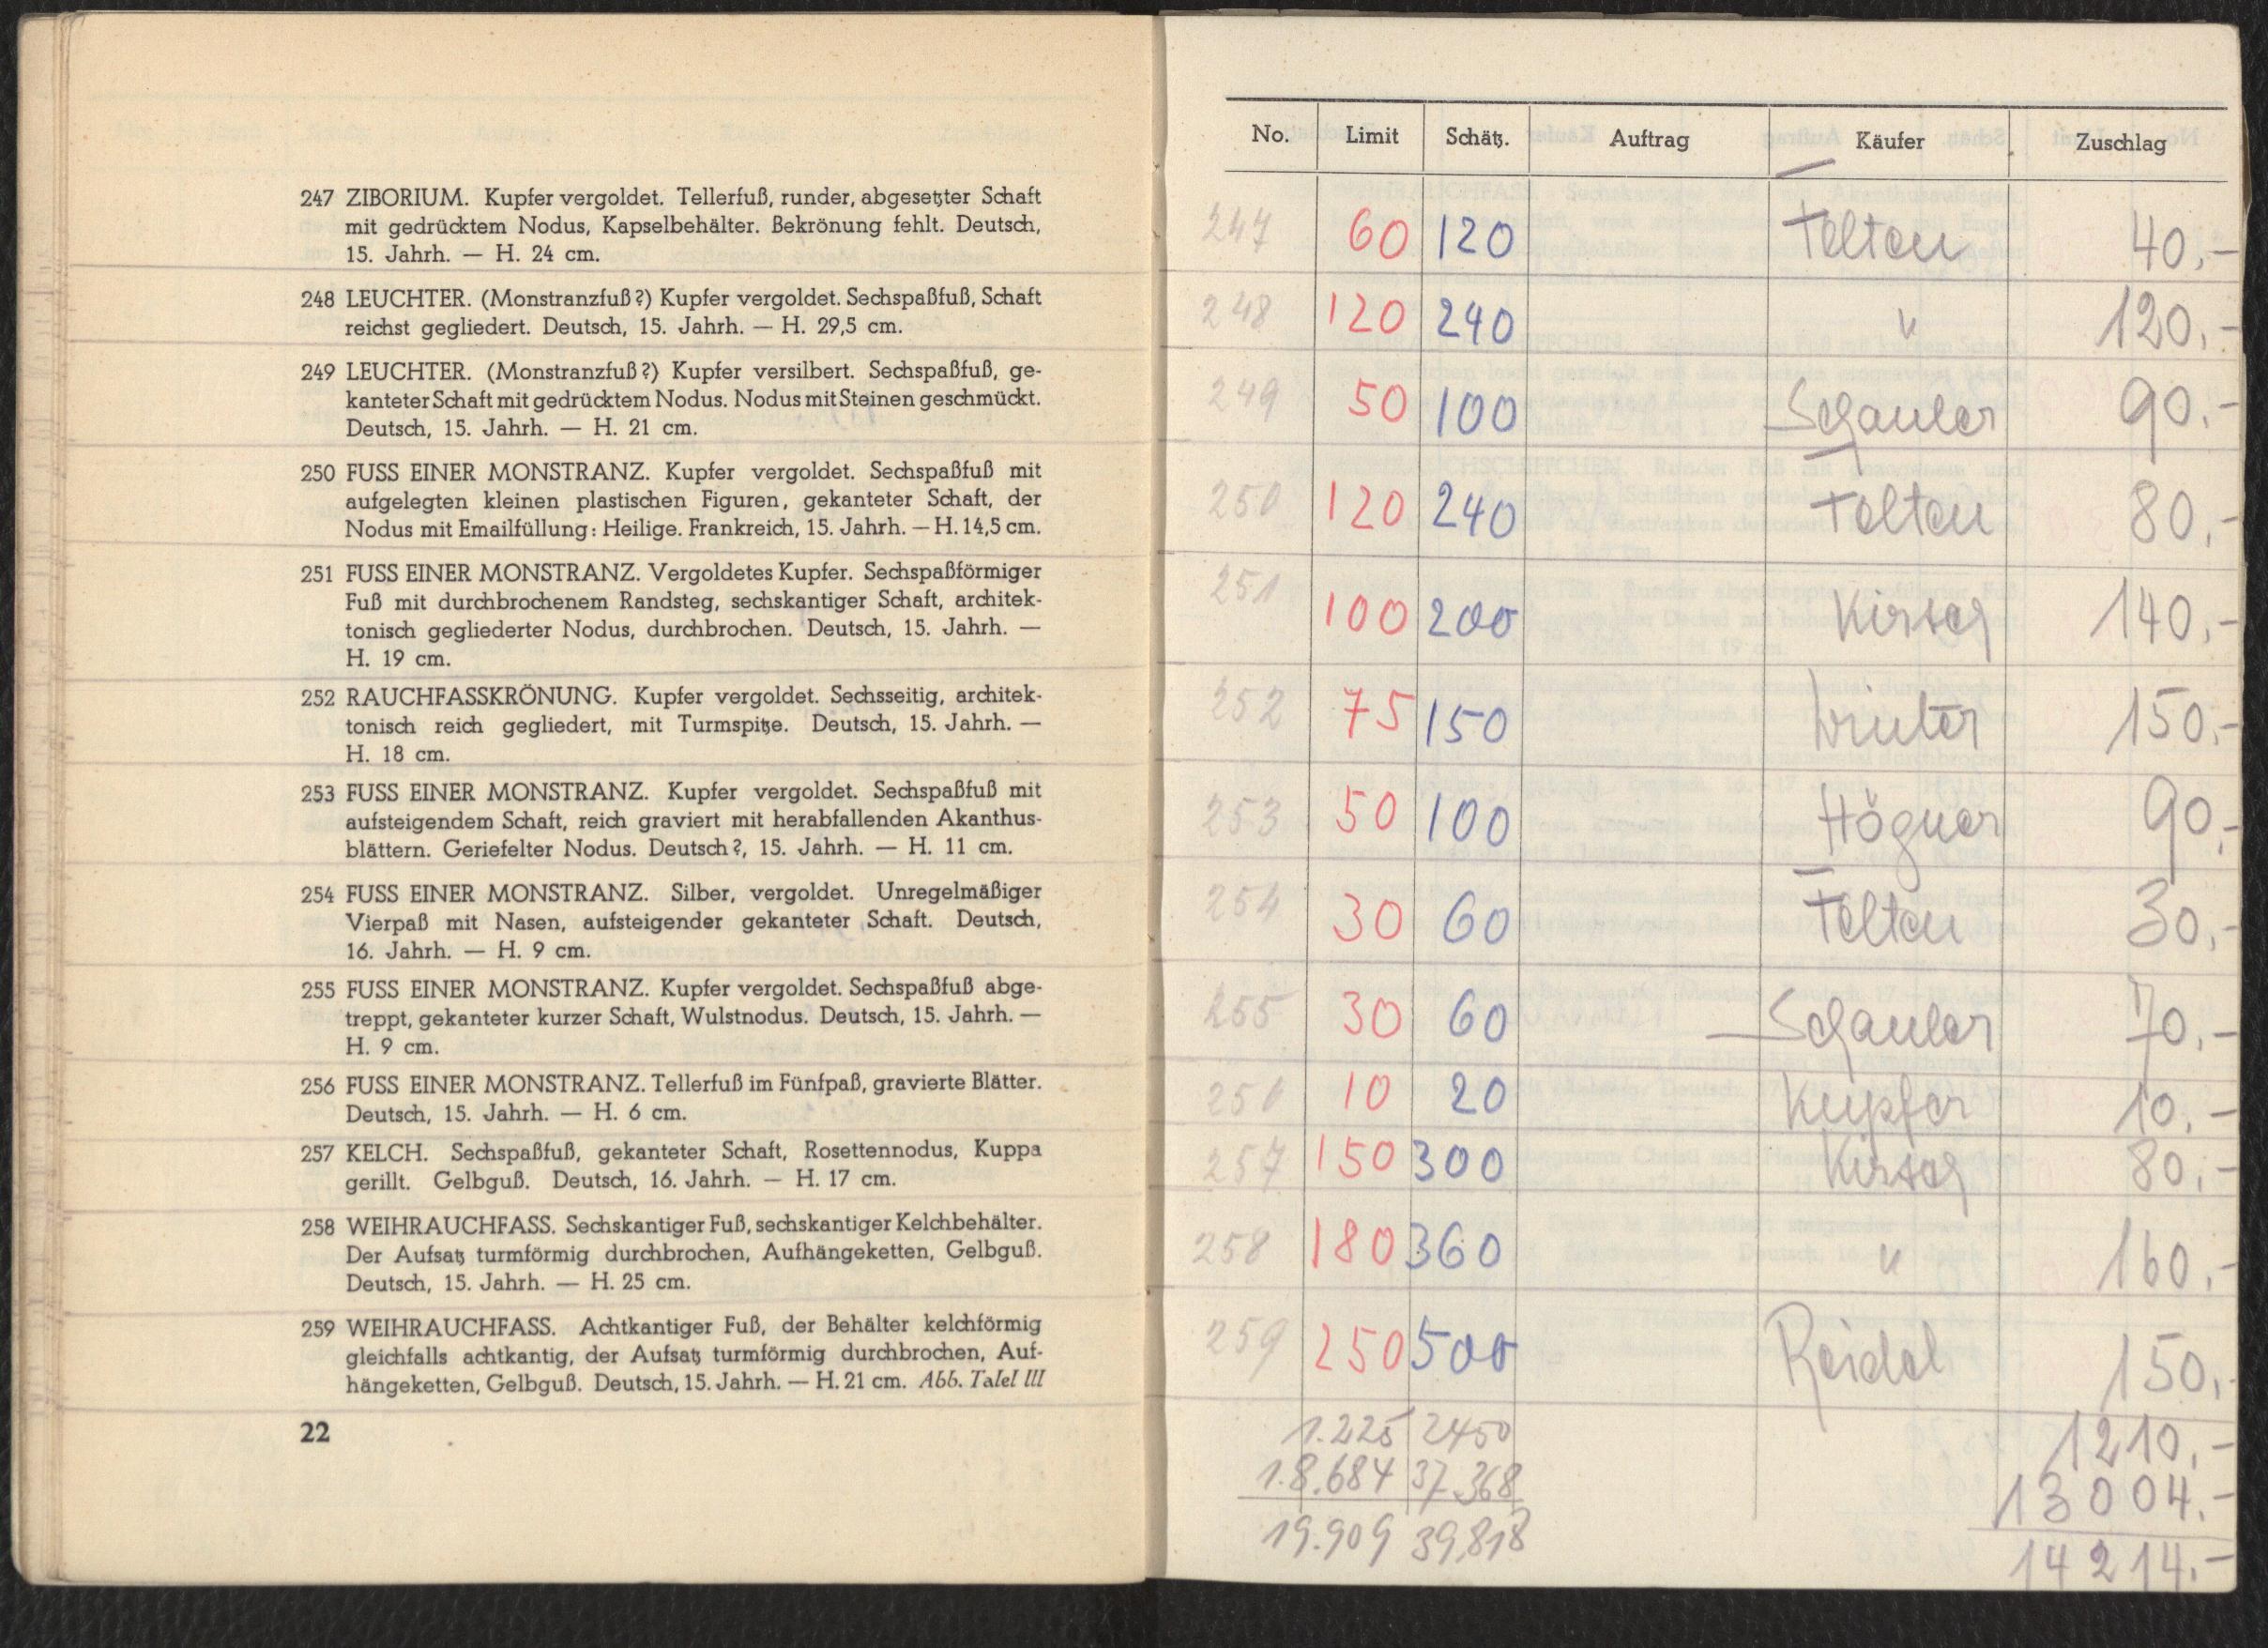 247 ZIBORIUM. Kupfer vergoldet. Tellerfuß, runder, abgesetzter Schaft
mit gedrücktem Nodus, Kapselbehälter. Bekrönung fehlt. Deutsch,
15. Jahrh. — H. 24 cm.
248 LEUCHTER. (Monstranzfuß?) Kupfer vergoldet. Sechspaßfuß, Schaft
reichst gegliedert. Deutsch, 15. Jahrh. — H. 29,5 cm.
249 LEUCHTER. (Monstranzfuß?) Kupfer versilbert. Sechspaßfuß, ge-
kanteter Schaft mit gedrücktem Nodus. Nodus mit Steinen geschmückt.
Deutsch, 15. Jahrh. — H. 21 cm.
250 FUSS EINER MONSTRANZ. Kupfer vergoldet. Sechspaßfuß mit
aufgelegten kleinen plastischen Figuren, gekanteter Schaft, der
Nodus mit Emailfüllung: Heilige. Frankreich, 15. Jahrh. — H. 14,5 cm.
251 FUSS EINER MONSTRANZ. Vergoldetes Kupfer. Sechspaßförmiger
Fuß mit durchbrochenem Randsteg, sechskantiger Schaft, architek-
tonisch gegliederter Nodus, durchbrochen. Deutsch, 15. Jahrh. —
H. 19 cm.
252 RAUCHFASSKRÖNUNG. Kupfer vergoldet. Sechsseitig, architek-
tonisch reich gegliedert, mit Turmspitze. Deutsch, 15. Jahrh. —
H. 18 cm.
253 FUSS EINER MONSTRANZ. Kupfer vergoldet. Sechspaßfuß mit
aufsteigendem Schaft, reich graviert mit herabfallenden Akanthus-
blättern. Geriefelter Nodus. Deutsch?, 15. Jahrh. — H. 11 cm.
254 FUSS EINER MONSTRANZ. Silber, vergoldet. Unregelmäßiger
Vierpaß mit Nasen, aufsteigender gekanteter Schaft. Deutsch,
16. Jahrh. — H. 9 cm.
255 FUSS EINER MONSTRANZ. Kupfer vergoldet. Sechspaßfuß abge-
treppt, gekanteter kurzer Schaft, Wulstnodus. Deutsch, 15. Jahrh. —
H. 9 cm.
256 FUSS EINER MONSTRANZ. Tellerfuß im Fünfpaß, gravierte Blätter.
Deutsch, 15. Jahrh. — H. 6 cm.
257 KELCH. Sechspaßfuß, gekanteter Schaft, Rosettennodus, Kuppa
gerillt. Gelbguß. Deutsch, 16. Jahrh. — H. 17 cm.
258 WEIHRAUCHFASS. Sechskantiger Fuß, sechskantiger Kelchbehälter.
Der Aufsatz turmförmig durchbrochen, Aufhängeketten, Gelbguß.
Deutsch, 15. Jahrh. — H. 25 cm.
259 WEIHRAUCHFASS. Achtkantiger Fuß, der Behälter kelchförmig
gleichfalls achtkantig, der Aufsatz turmförmig durchbrochen, Auf-
hängeketten, Gelbguß. Deutsch, 15. Jahrh. — H. 21 cm. Abb. Tafel III
22
No. Limit Schätz. Auftrag Käufer Zuschlag
247 60 120 Felten 40,-
248 120 240 " 120,-
249 50 100 Schauler 90,-
250 120 240 Felten 80,-
251 100 200 Kirsch 140,-
252 75 150 Winter 150,-
253 50 100 Högner 90,-
254 30 60 Felten 30,-
255 30 60 Schauler 70,-
256 10 20 Kupfer 10,-
257 150 300 Kirsch 80,-
258 180 360 " 160,-
259 250 500 Reidel 150,-
1.225 2450 1210,-
18.684 37.368 13004.-
19.909 39,818 14214.-